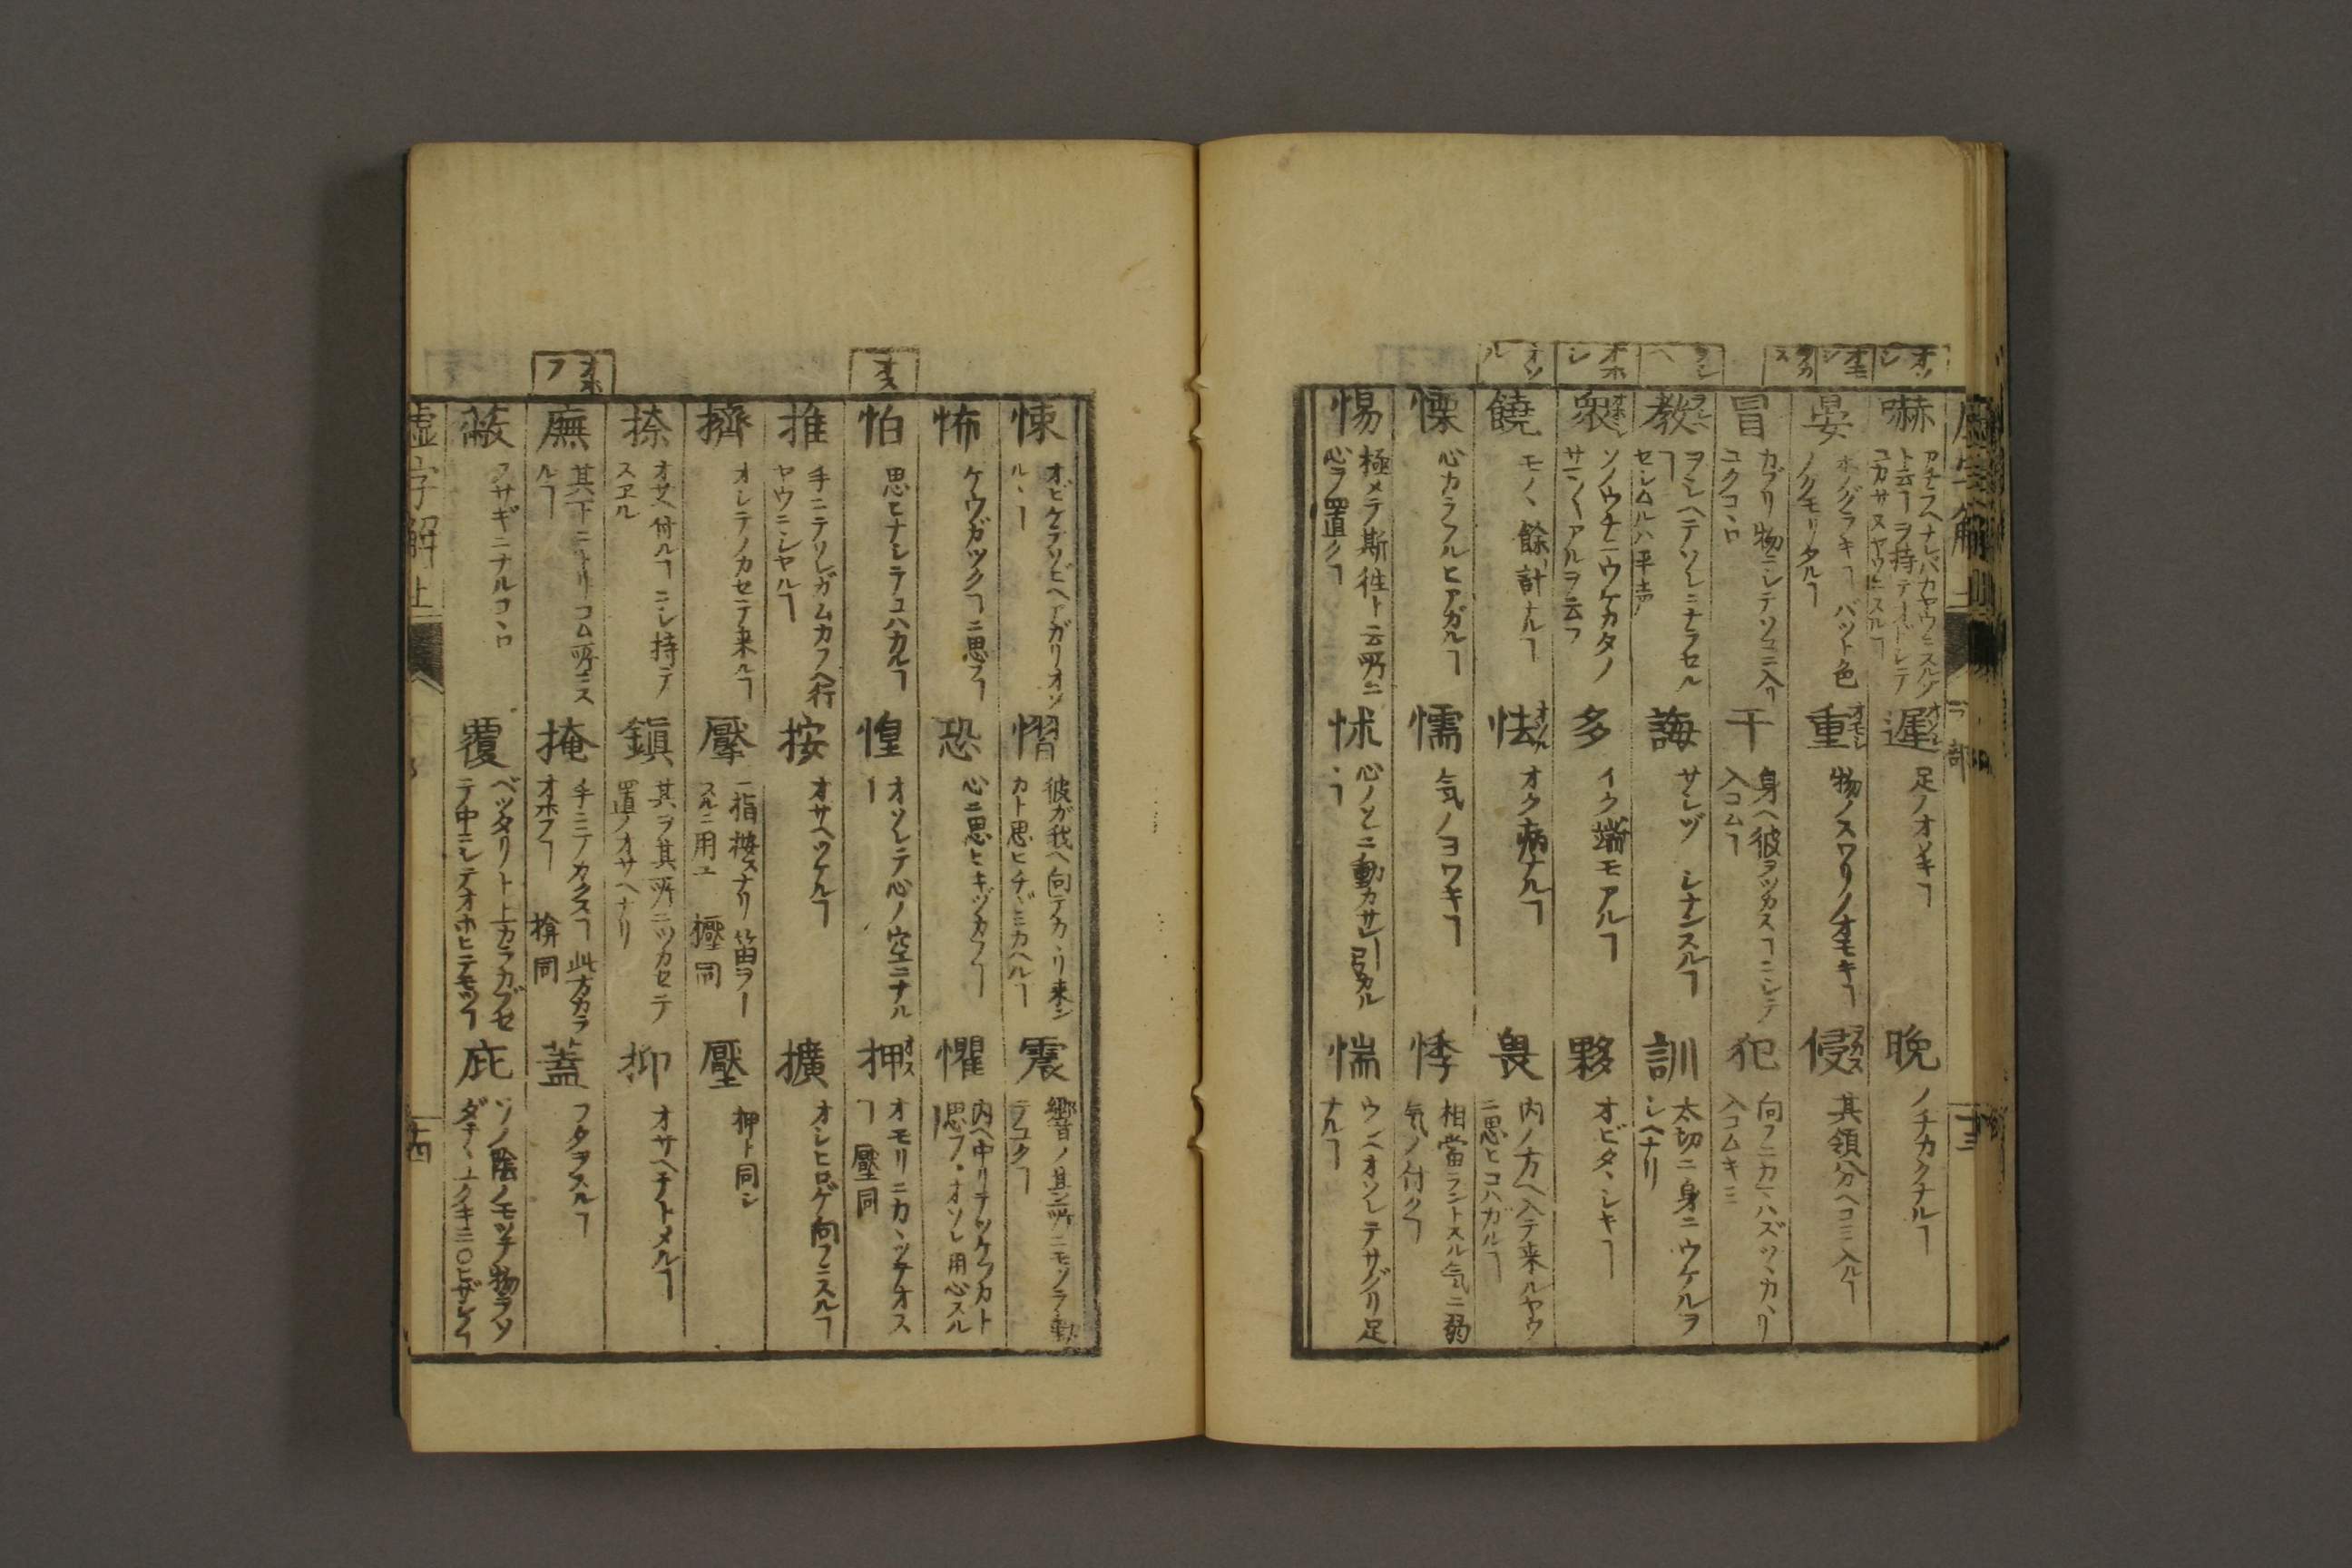 オソシ
オモシ
ヲカス
ヲシヘ
オホシ
オソル
嚇
遲 オソシ 足ノオソキヿ
晩 ノチカクナルヿ
晏 ホノグラキヿ バット色
ノクモリタルヿ
重 オモシ 物ノスワリノオモキヿ
侵 ヲカス 其領分ヘコミ入ルヿ
冒 カブリ物ニシテソコニ入リ
ユクコヽロ
干 身ヘ彼ヲツカスヿニシテ
入コムヿ
犯 向フニカマハズツヽカヽリ
入コムキミ
教 ヲシヘ ヲシヘテソレニナラセル
ヿ
セシムルハ平声
誨 サシヅ シナンスルヿ
訓 太切ニ身ニウケルヲ
シヘナリ
衆 オホシ ソノウチニウケカタノ
サマ〱アルヲ云フ
多 イク端モアルヿ
夥 オビタヽシキヿ
饒 モノヽ餘計ナルヿ
怯 オソル オク病ナルヿ
畏 内ノ方ヘ入テ来ルヤウ
ニ思ヒコハガルヿ
慄 心カラフルヒアガルヿ
懦 気ノヨワキヿ
悸 相當ラントスル気ニ弱
気ノ付クヿ
惕 極メテ斯徃ト云所ニ
心ヲ置クヿ
怵 心ノソヽニ動カサレ引カル
ヽヿ
惴 ウハヘオソレテサグリ足
ナルヿ
オス
オホフ
悚 オビケヲソビヘアガリオソ
ルヽヿ
慴 彼ガ我ヘ向テカヽリ来ン
カト思ヒチヾミカヘルヿ
震 響ノ其所ニモソラ動
テユクヿ
怖 ケウガツクヿニ思フヿ
恐 心ニ思ヒキヅカフヿ
懼 内ヘ中リテツケフカト
思フヽオソレ用心スル
怕 思ヒナシテコハカルヿ
惶 オソレテ心ノ空ニナル
ヿ
押 オス オモリニカヽツテオス
ヿ 壓同
推 手ニテソレガムカフヘ行
ヤウニシヤルヿ
按 オサヘツケルヿ
擴 オシヒロゲ向フニスルヿ
擠 オシテノカセテ来ルヿ
擪 一指按スナリ笛ヲー
スルニ用ユ 擫同
壓 押ト同シ
捺 オサヘ付ルヿニシ持テ
スヱル
鎭 其ヲ其所ニツカセテ
置ノオサヘナリ
抑 オサヘチトメルヿ
廡 其下ニトリコム所ニス
ルヿ
掩 手ニテカクスヿ此方カラ
オホフヿ 揜同
蓋 フタヲスルヿ
蔽 フサギニナルコヽロ
覆 ベッタリト上カラカブセ
テ中ニシテオホヒニテモツヿ
庇 ソノ陰ノモツチ物ラソ
虚字解上
十四